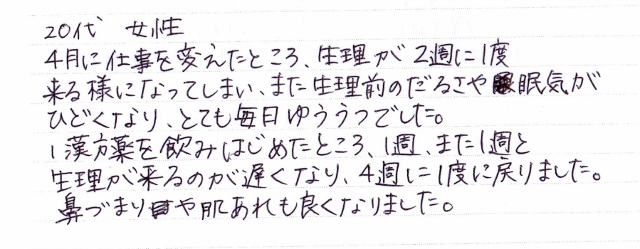 20代 女性
4月に仕事を変えたところ、生理が2週に1度
来る様になってしまい、また生理前のだるさや眠気が
ひどくなり、とても毎日ゆううつでした。
漢方薬を飲みはじめたところ、1週、また1週と
生理が来るのが遅くなり、4週に1度に戻りました。
鼻づまりや肌あれも良くなりました。